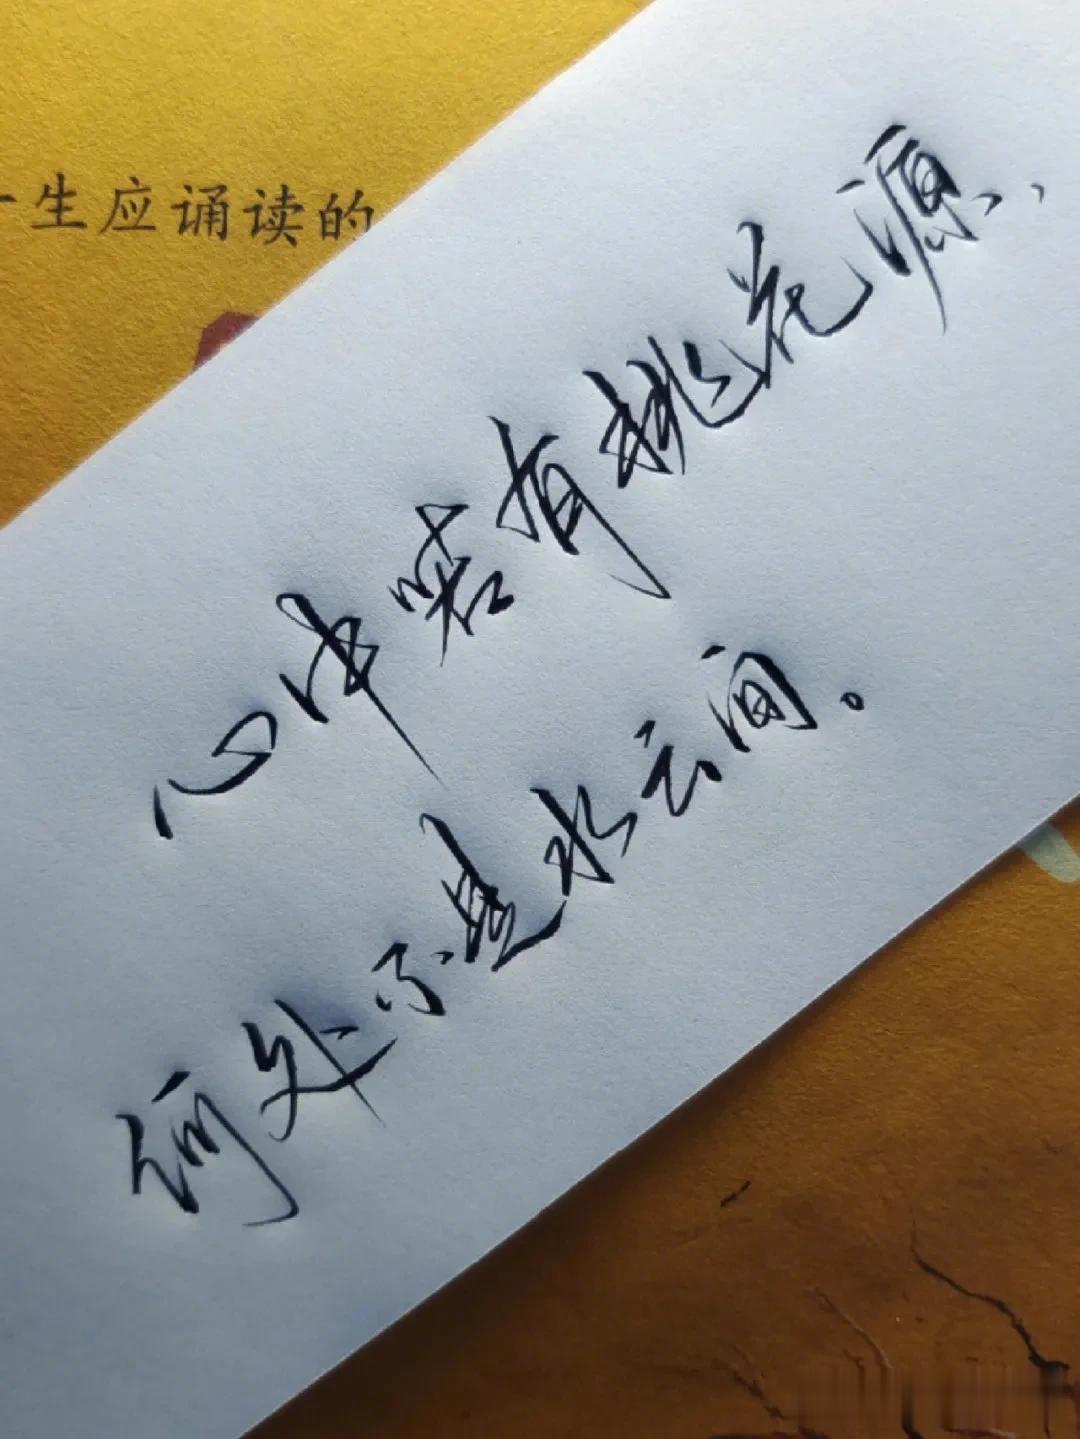 生应诵读的
心中若有桃花源,
何处不是水云间。